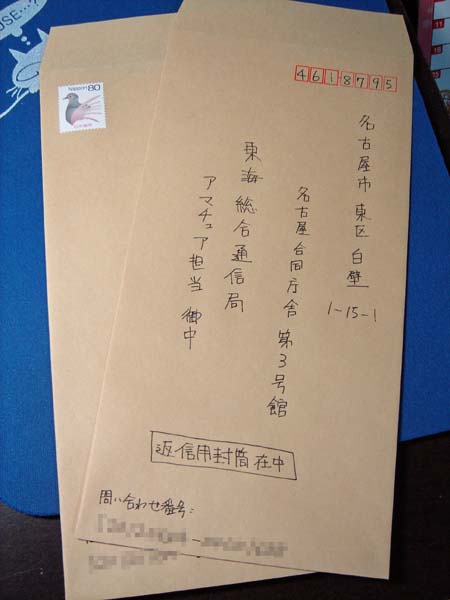 4618795
名古屋市東区白壁
1-15-1
名古屋合同庁舎第3号館
東海総合通信局
アマチュア担当 御中
返信用封筒在中
問い合わせ番号:
NIPPON 80
USE...?